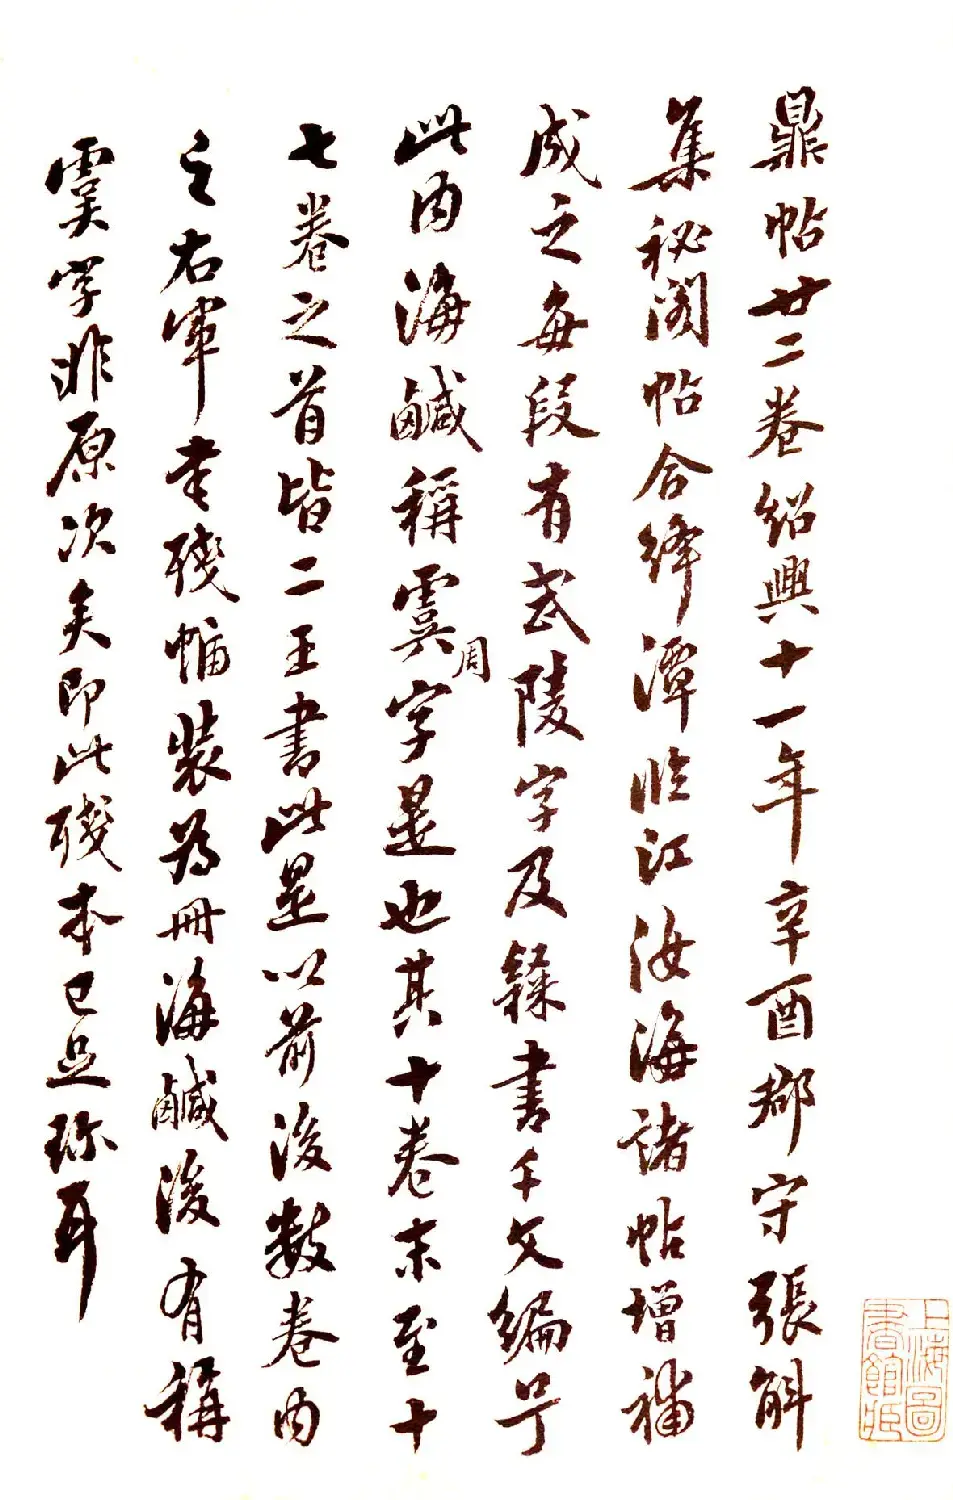 鼎帖廿二卷紹興十一年辛酉郡守張斛
集秘閣帖合絳潭臨江汝海諸帖增補
成之每段有武陵字及隸書千文編号
此內海鹹稱霙周字是也其十卷末至十
七卷之首皆二王書此是以前後數卷內
之右軍書殘幅裝為冊海鹹後有稱
霙字非原次矣即此殘本已足珍耳
上海圖書館藏